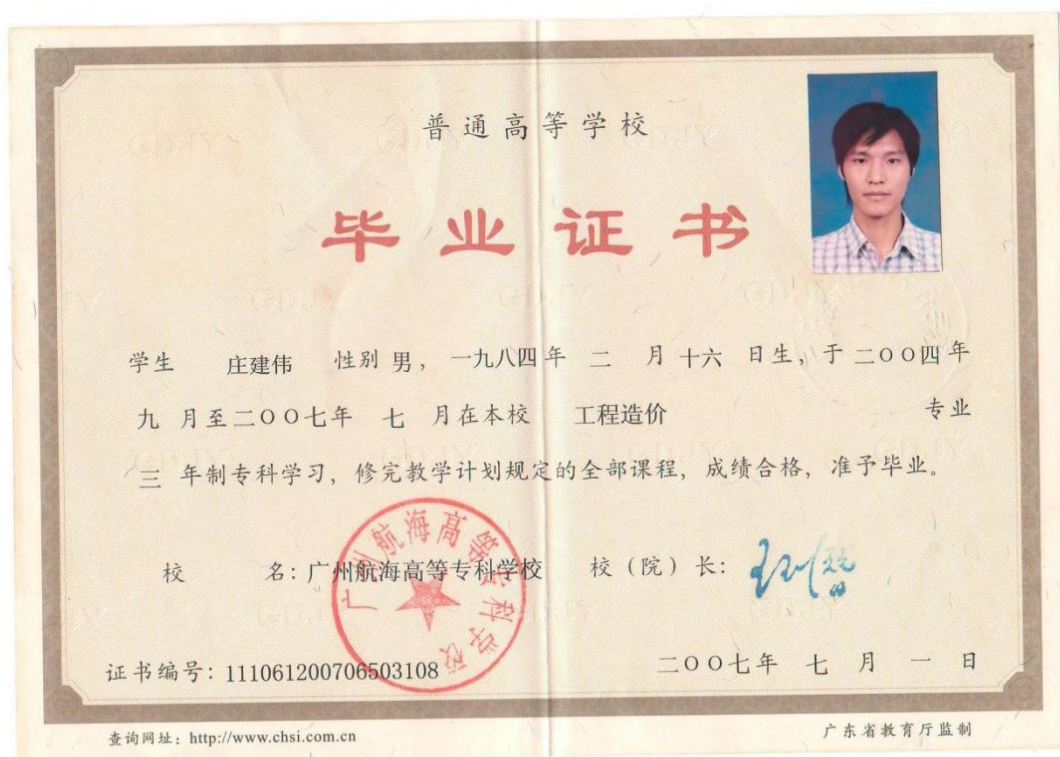 普通高等学校
毕业证书
学生 庄建伟 性别 男，一九八四年 二 月 十六 日生，于二〇〇四年
九 月至二〇〇七年 七 月在本校 工程造价 专业
三 年制专科学习，修完教学计划规定的全部课程，成绩合格，准予毕业。
校 名：广州航海高等专科学校 校（院）长：
广州航海高等专科学校
证书编号：111061200706503108 二〇〇七年 七 月 一 日
查询网址：http://www.chsi.com.cn 广东省教育厅监制